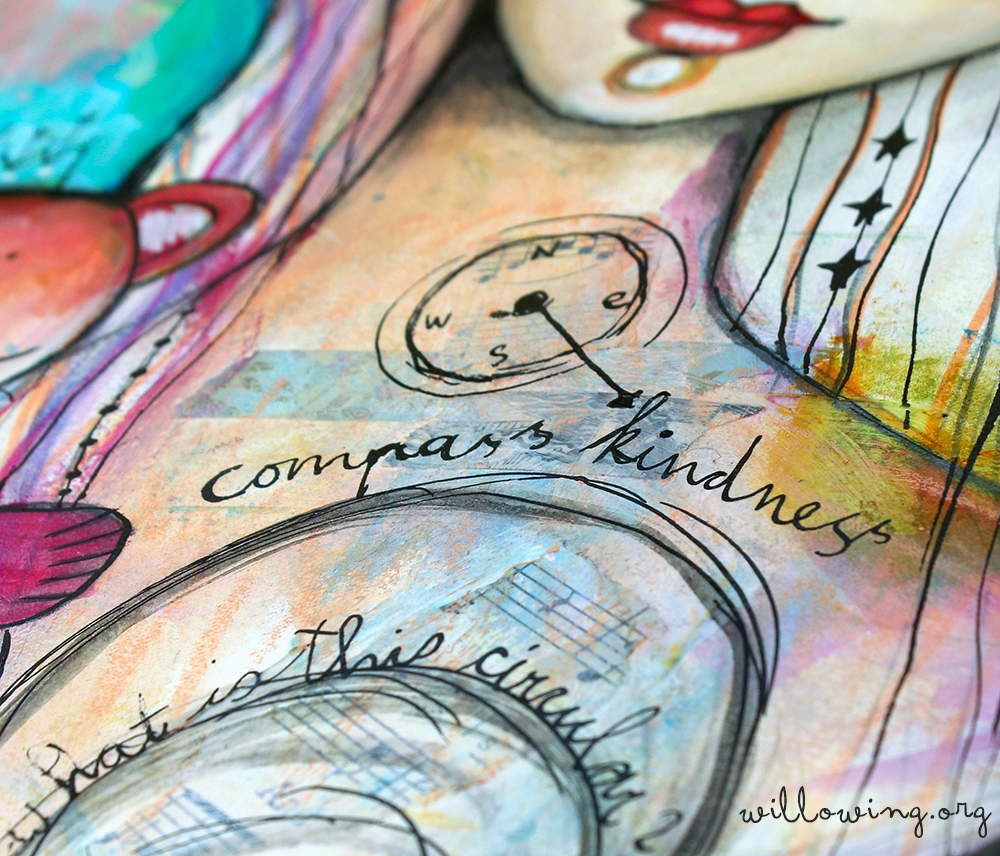 N
W e
S
compass kindness
what is this circular
willowing.org